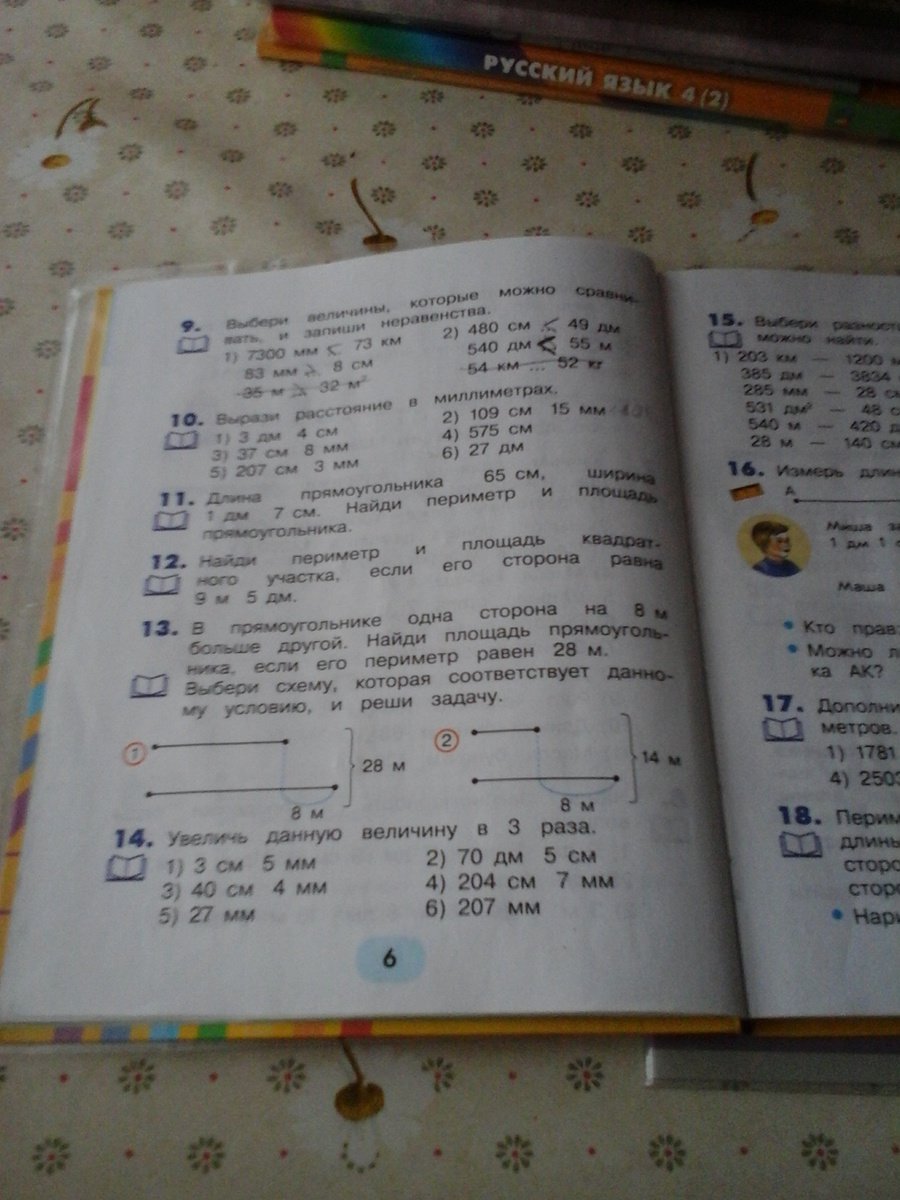 РУССКИЙ ЯЗЫК 4 (2)
9. Выбери величины, которые можно сравни-
вать, и запиши неравенства.
1) 7300 мм < 73 км 2) 480 см < 49 дм
83 мм > 8 см 540 дм < 55 м
35 м > 32 м² 54 км ... 52 кг
10. Вырази расстояние в миллиметрах.
1) 3 дм 4 см 2) 109 см 15 мм
3) 37 см 8 мм 4) 575 см
5) 207 см 3 мм 6) 27 дм
11. Длина прямоугольника 65 см, ширина
1 дм 7 см. Найди периметр и площадь
прямоугольника.
12. Найди периметр и площадь квадрат-
ного участка, если его сторона равна
9 м 5 дм.
13. В прямоугольнике одна сторона на 8 м
больше другой. Найди площадь прямоуголь-
ника, если его периметр равен 28 м.
Выбери схему, которая соответствует данно-
му условию, и реши задачу.
1 28 м 2 14 м
8 м 8 м
14. Увеличь данную величину в 3 раза.
1) 3 см 5 мм 2) 70 дм 5 см
3) 40 см 4 мм 4) 204 см 7 мм
5) 27 мм 6) 207 мм
6
15. Выбери
можно найти.
1) 203 км — 1200
385 дм — 3834
285 мм — 28
531 дм² — 48
540 м — 420
28 м — 140 см
16. Измерь
А
Миша
1 дм 1
Маша
• Кто
• Можно
ка АК?
17. Дополни
метров.
1) 1781
4)
18.
• Нари